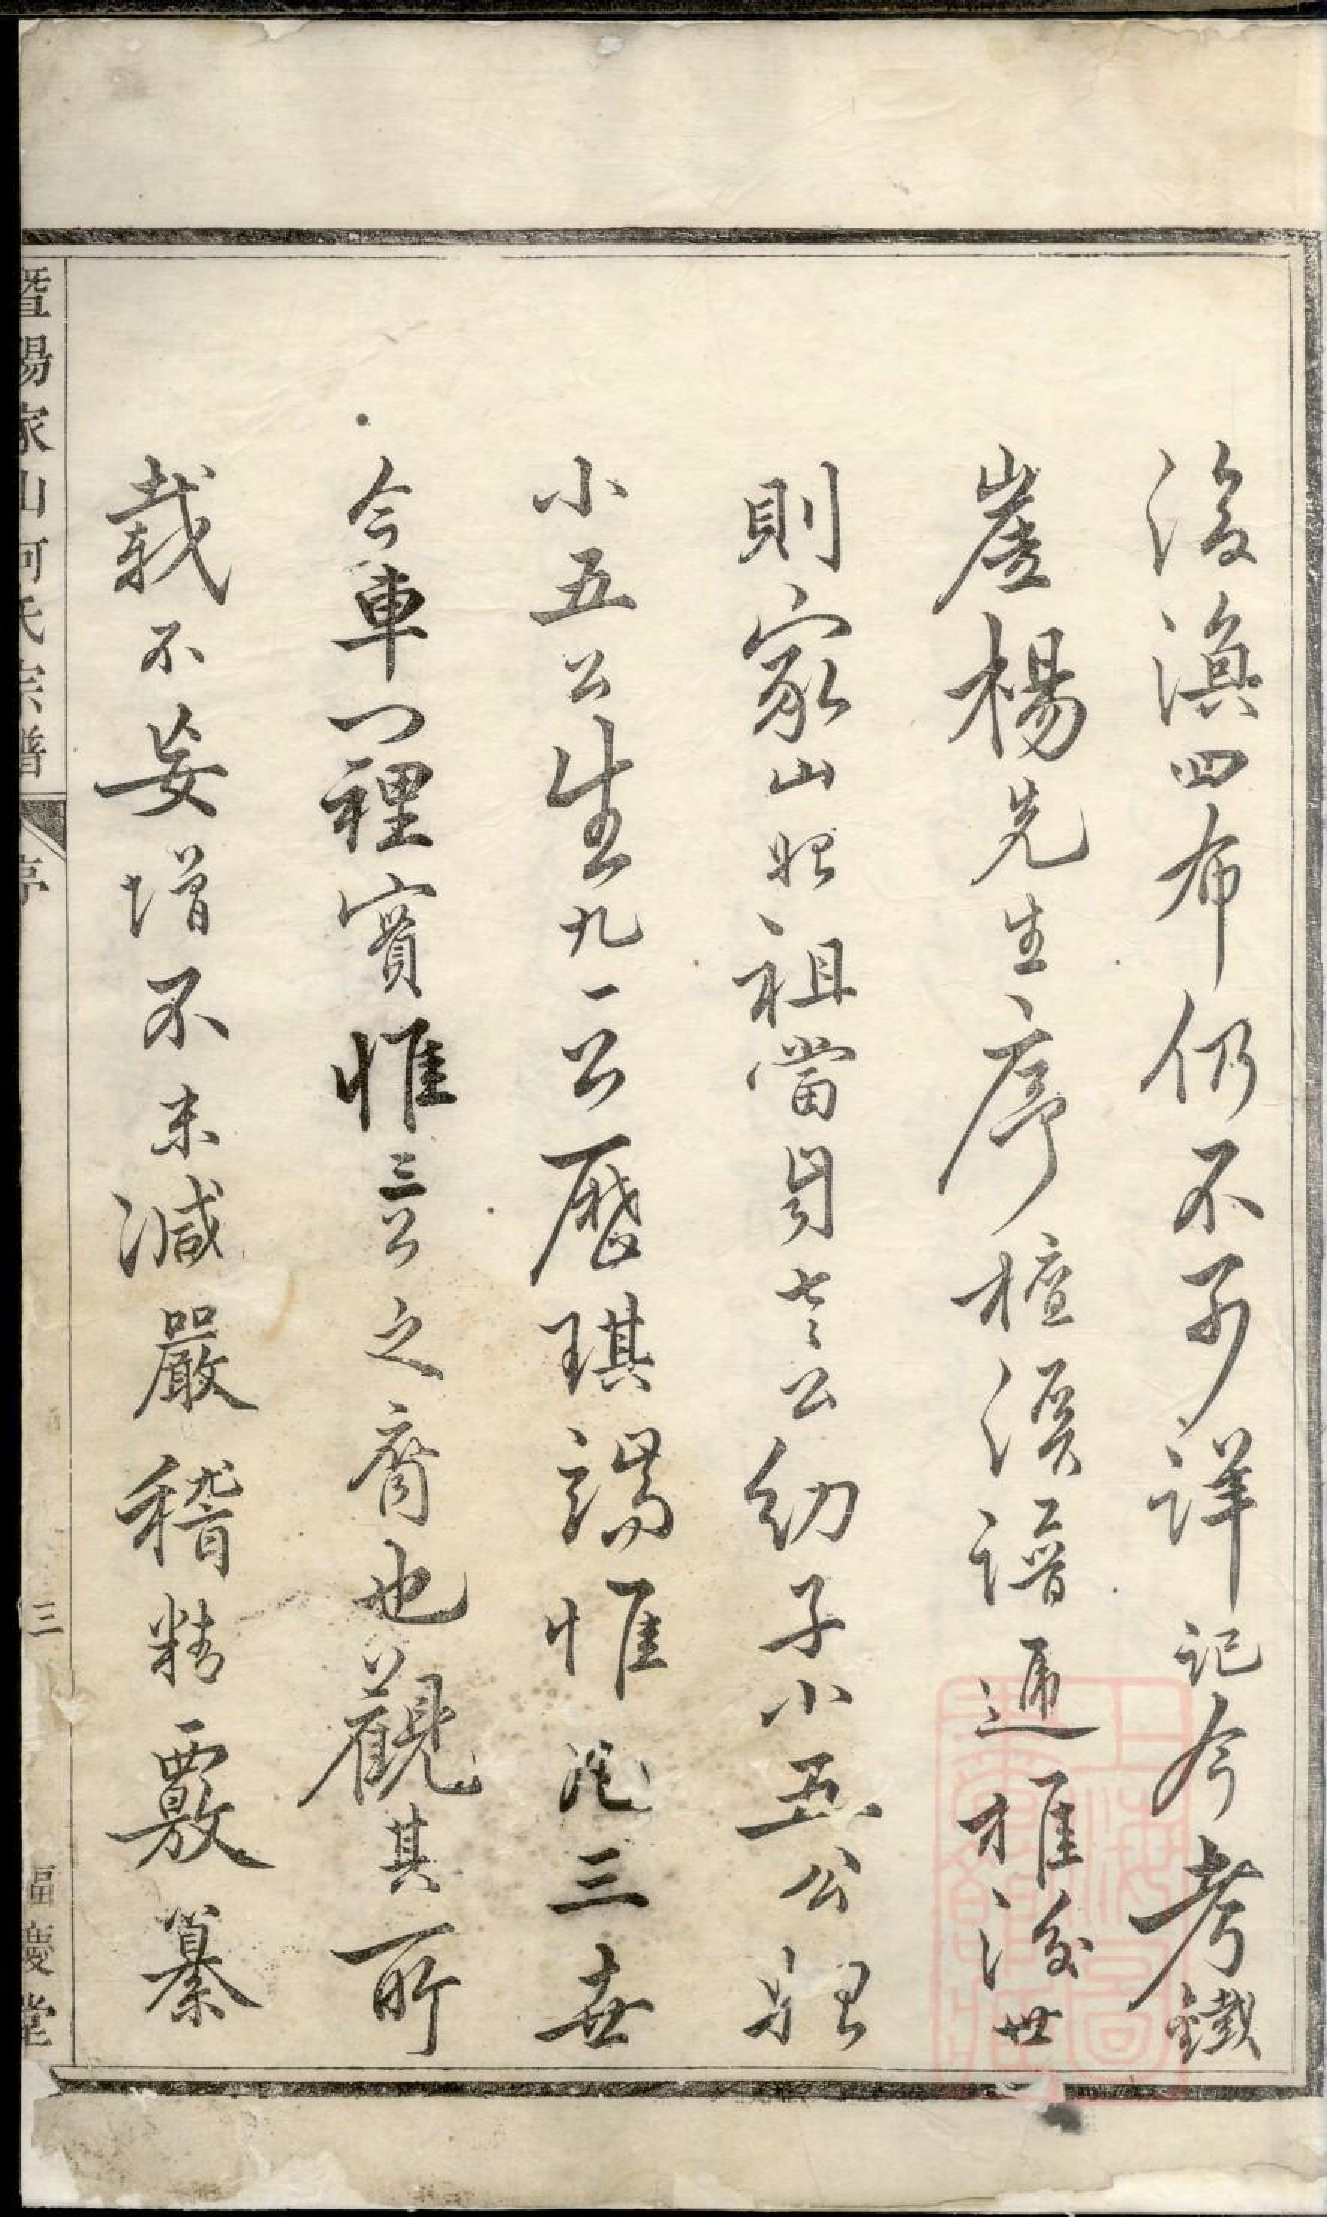 後渙四布仍不可詳記今考鐵
崖楊先生序檀溪譜遞推後世
則家山始祖當屬七三公幼子小五公始
小五公生九一公歷琪端惟三世
今車門裡實惟三公之裔也觀其所
載不妄增不末減嚴稽精覈纂
暨陽家山何氏宗譜
序
三
福慶堂